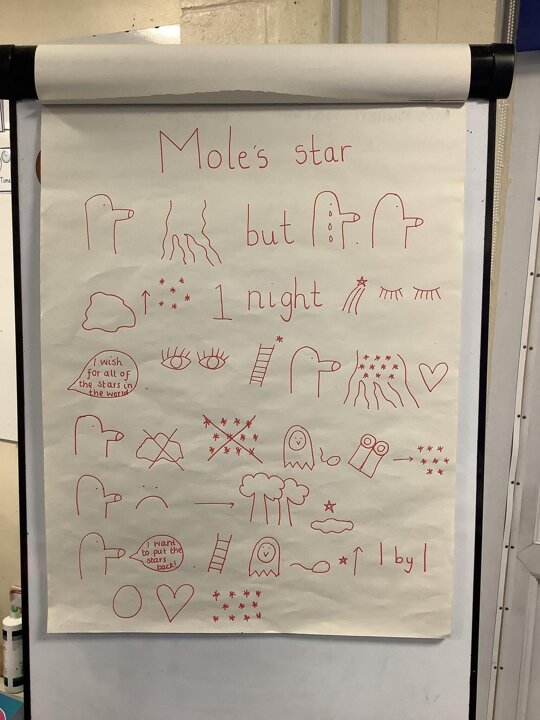 Mole's star
but
1 night
I wish
for all of
the stars in
the world
I want
to put the
stars
back!
1 by 1
Time